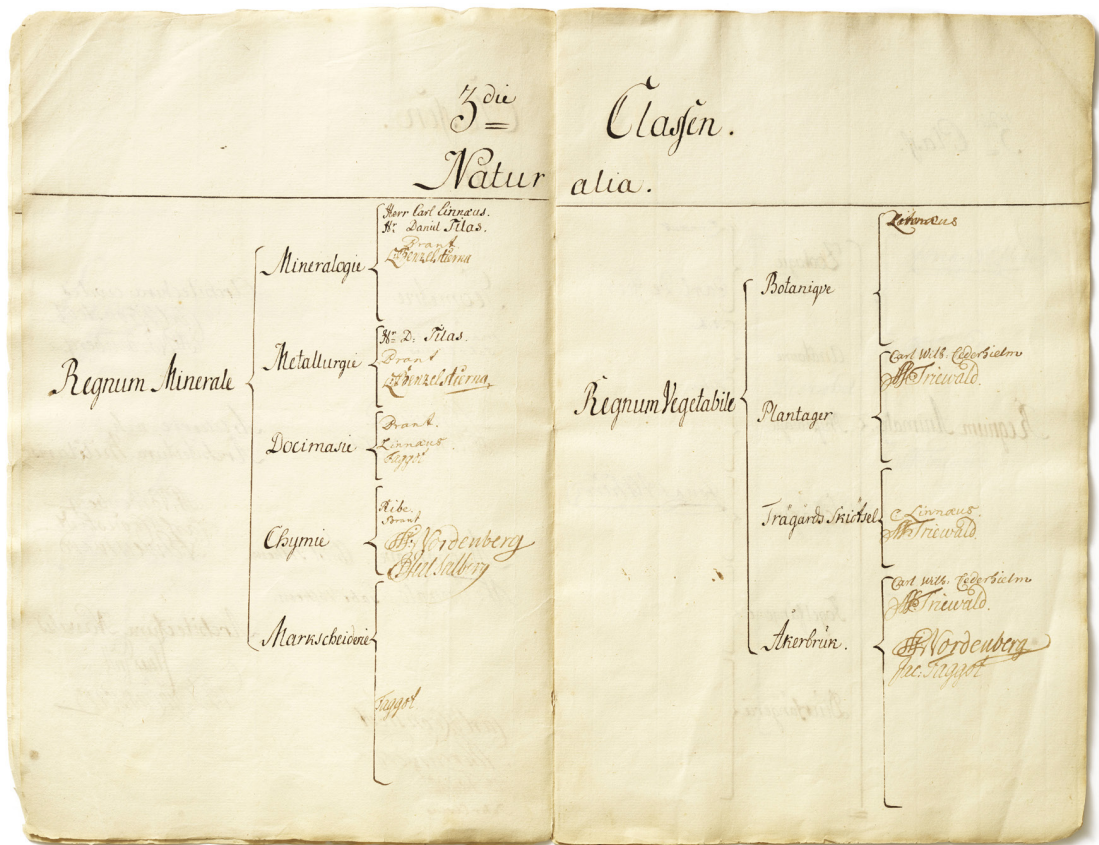 3die Classen.
Naturalia.
Regnum Minerale
Mineralogie
Herr Carl Linnæus.
Hr. Daniel Tilas.
Brant
Benzelstierna
Metallurgie
Hr. D: Tilas.
Brant
Benzelstierna
Docimasie
Brant.
Linnæus.
Faggot
Chymie
Ribe.
Brant
Nordenberg
Salberg
Markscheiderie
Faggot
Regnum Vegetabile
Botanique
Linnæus
Plantager
Carl Wilh. Cederhielm
Triewald.
Trägårds Skiötsel
C Linnæus.
Triewald.
Åkerbruk.
Carl Wilh. Cederhielm
Triewald.
Nordenberg
Jac: Faggot